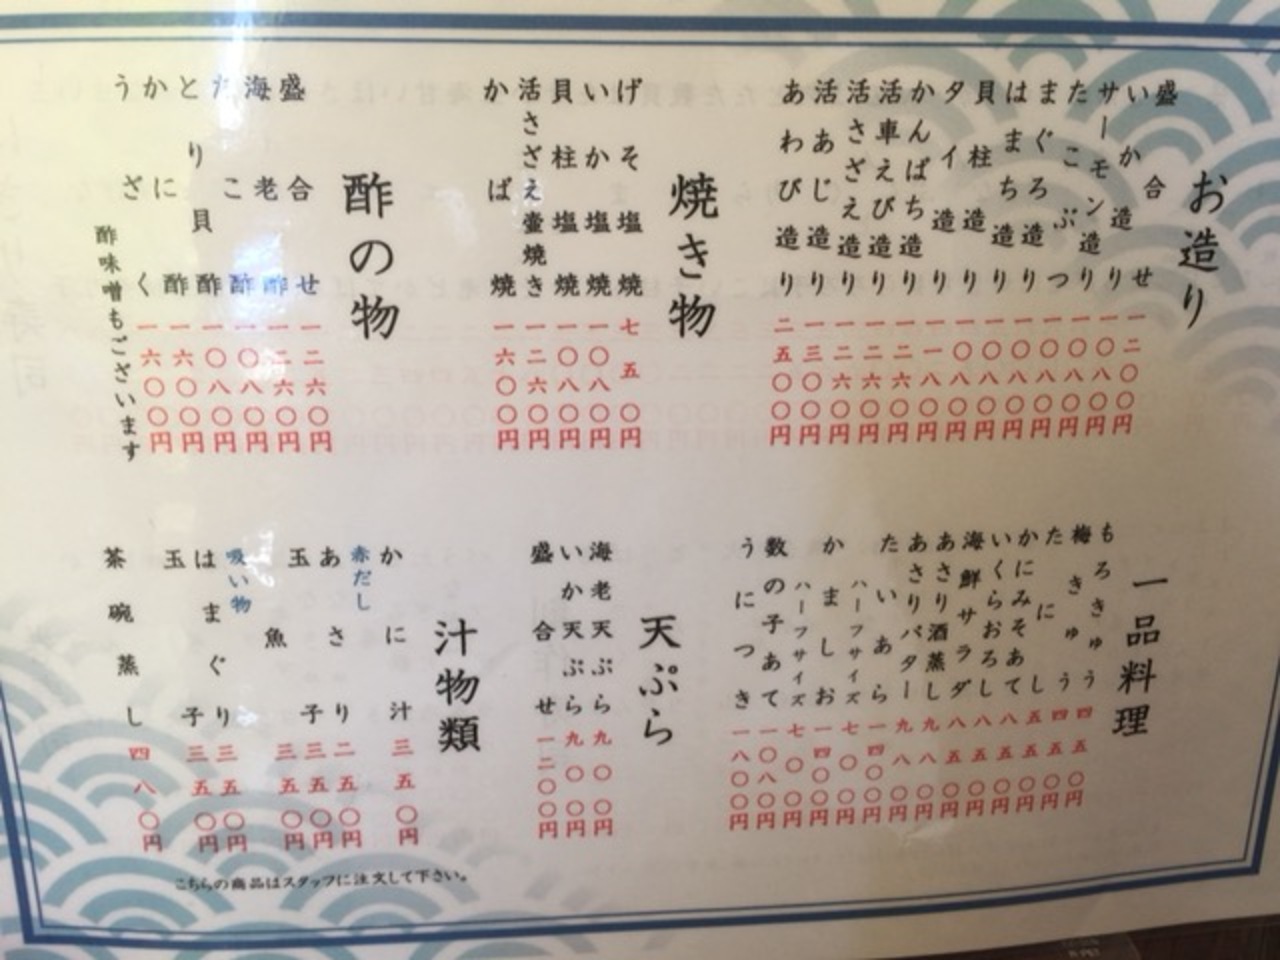 お造り
盛合せ 一二〇〇円
いか造り 一〇八〇円
サーモン造り 一〇八〇円
たこぶつ 一〇八〇円
まぐろ造り 一〇八〇円
はまち造り 一〇八〇円
貝柱造り 一〇八〇円
タイ造り 一一八〇円
かんぱち造り 一二六〇円
活車えび造り 一二六〇円
活さざえ造り 一二六〇円
活あじ造り 一三〇〇円
あわび造り 二五〇〇円
焼き物
げそ塩焼 七五〇円
いか塩焼 一〇八〇円
貝柱塩焼 一〇八〇円
活さざえ壷焼き 一二六〇円
かば焼 一六〇〇円
酢の物
盛合せ 一二六〇円
海老酢 一二六〇円
たこ酢 一〇八〇円
とり貝酢 一〇八〇円
かに酢 一六〇〇円
うざく 一六〇〇円
酢味噌もございます
一品料理
もろきゅう 四五〇円
梅きゅう 四五〇円
たにし 五五〇円
かにみそあて 八五〇円
いくらおろし 八五〇円
海鮮サラダ 八五〇円
あさり酒蒸し 九八〇円
あさりバター 九八〇円
たいあら 一四〇〇円
ハーフサイズ 七〇〇円
かましお 一四〇〇円
ハーフサイズ 七〇〇円
数の子あて 一〇八〇円
うにつき 一八〇〇円
天ぷら
海老天ぷら 九〇〇円
いか天ぷら 九〇〇円
盛合せ 一二〇〇円
汁物類
かに汁 三五〇円
赤だし
あさり 二五〇円
玉子 三五〇円
魚 三五〇円
吸い物
はまぐり 三五〇円
玉子 三五〇円
茶碗蒸し 四八〇円
こちらの商品はスタッフに注文して下さい。